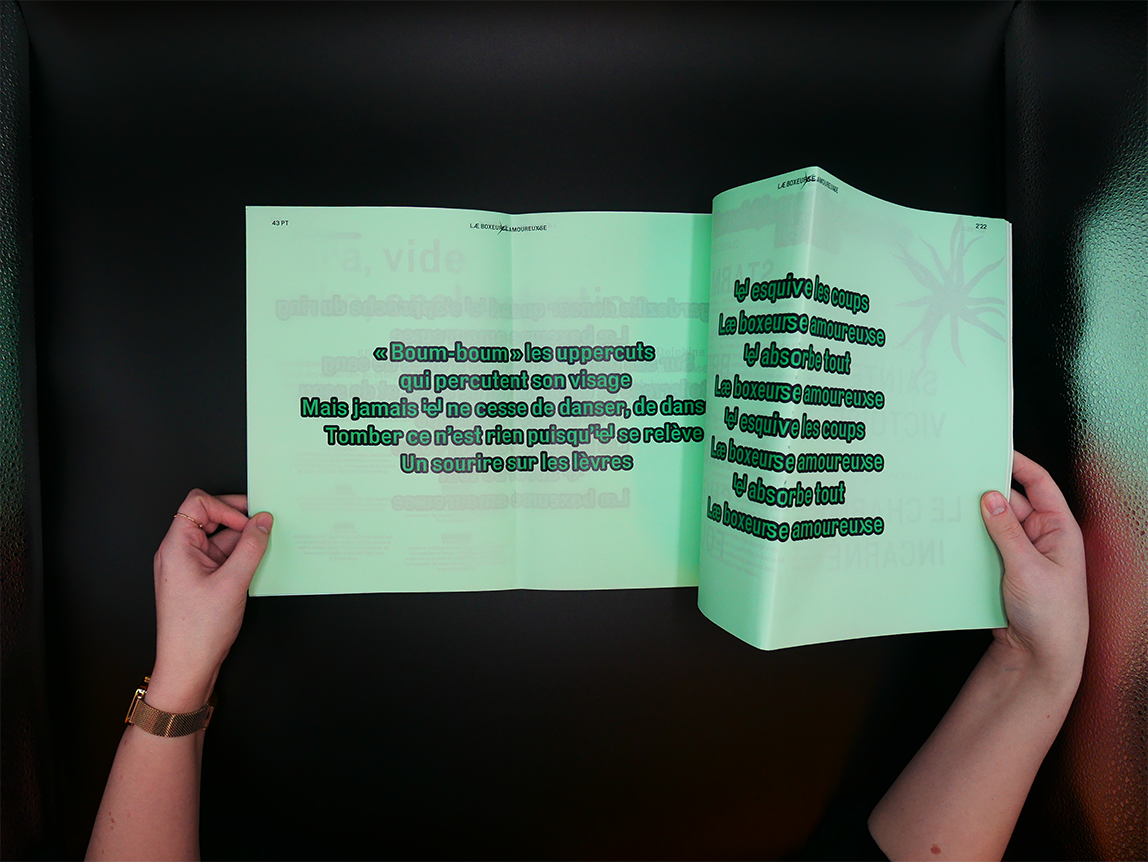 43 PT
LÆ BOXEURSE AMOUREUXSE
« Boum-boum » les uppercuts
qui percutent son visage
Mais jamais iel ne cesse de danser, de dans
Tomber ce n'est rien puisqu'iel se relève
Un sourire sur les lèvres
LÆ BOXEURSE AMOUREUXSE
2'22
Iel esquive les coups
Læ boxeurse amoureuxse
Iel absorbe tout
Læ boxeurse amoureuxse
Iel esquive les coups
Læ boxeurse amoureuxse
Iel absorbe tout
Læ boxeurse amoureuxse
a, vide